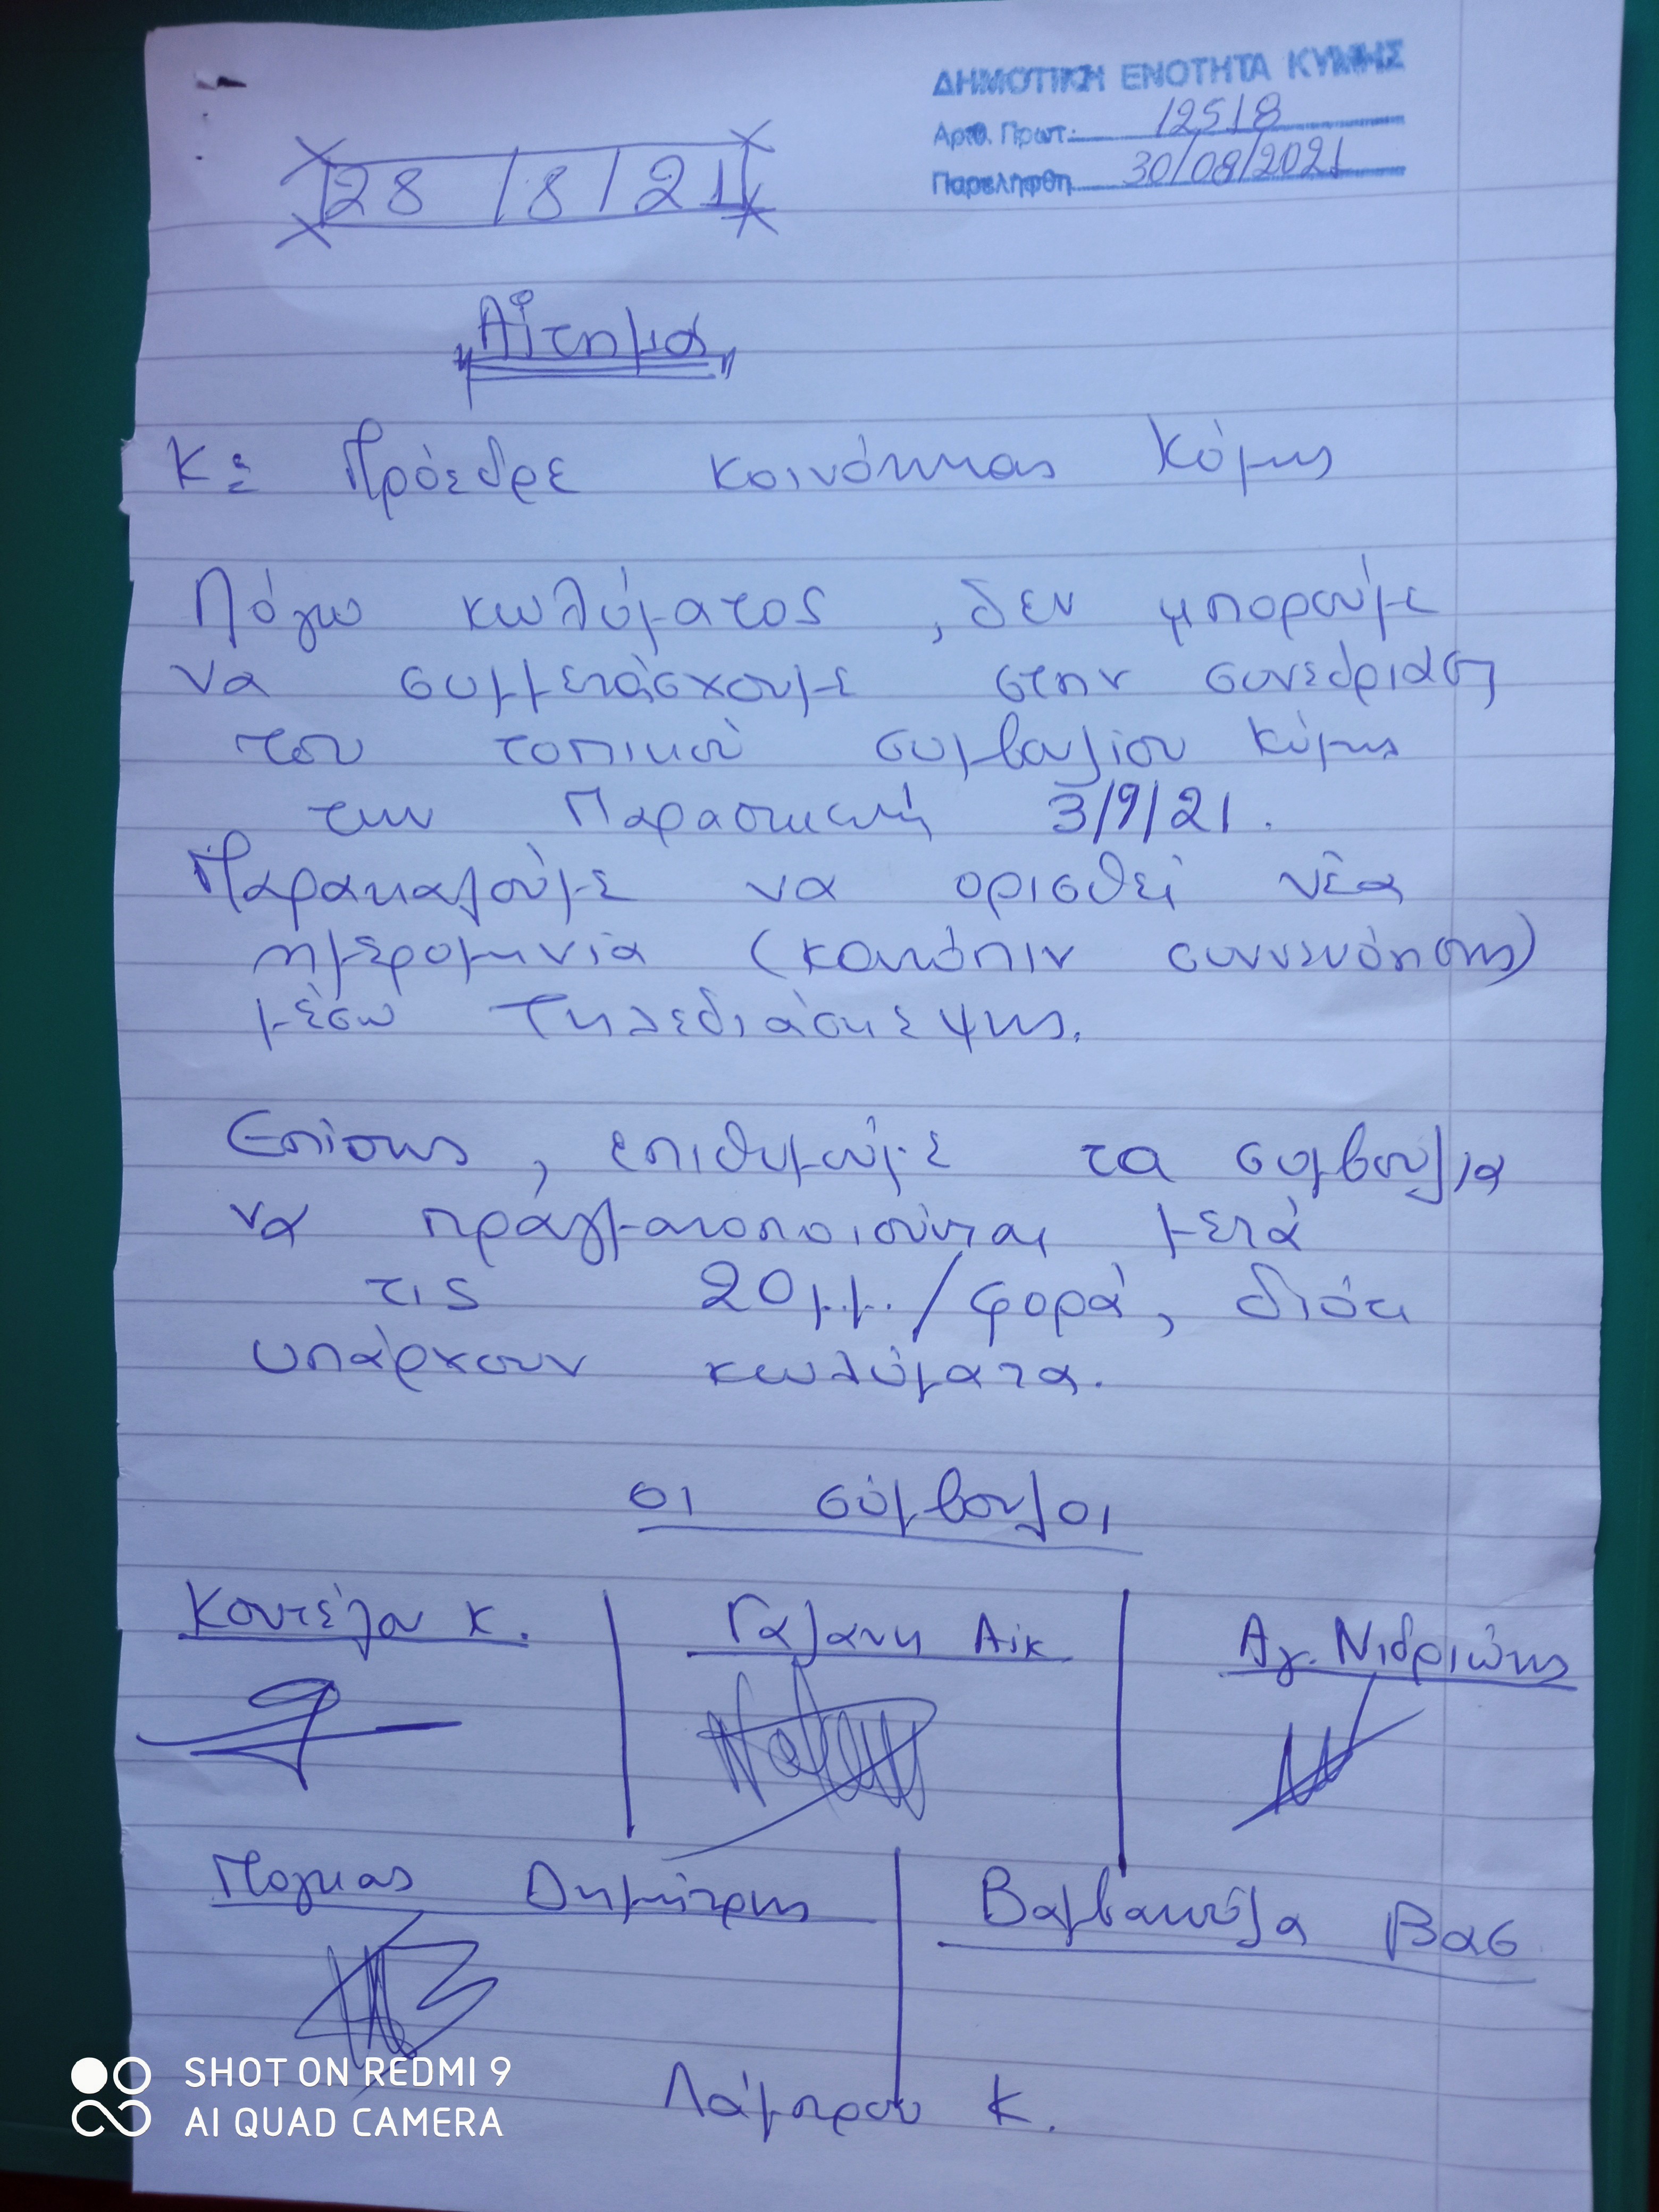 ΔΗΜΟΤΙΚΗ ΕΝΟΤΗΤΑ ΚΥΜΗΣ
Αριθ. Πρωτ. 12518
Παρελήφθη 30/08/2021
28/8/21
"Αίτημα"
Κε Πρόεδρε κοινότητας Κύμης
Λόγω κωλύματος, δεν μπορούμε
να συμμετάσχουμε στην συνεδριαση
του τοπικού συμβουλίου Κύμης
την Παρασκευή 3/9/21.
Παρακαλούμε να ορισθεί νέα
ημερομηνία (κατόπιν συννενόησης)
μέσω τηλεδιάσκεψης.
Επίσης, επιθυμούμε τα συμβούλια
να πραγματοποιούνται μετά
τις 20μ.μ./φορά, διότι
υπάρχουν κωλύματα.
οι σύμβουλοι
Κουτέλου Κ.
Γαλάνη Αικ
Αγ. Νιδριώτης
Πογκας Δημήτρης
Βαμβακούλα Βασ
Λάμπρου Κ.
SHOT ON REDMI 9
AI QUAD CAMERA